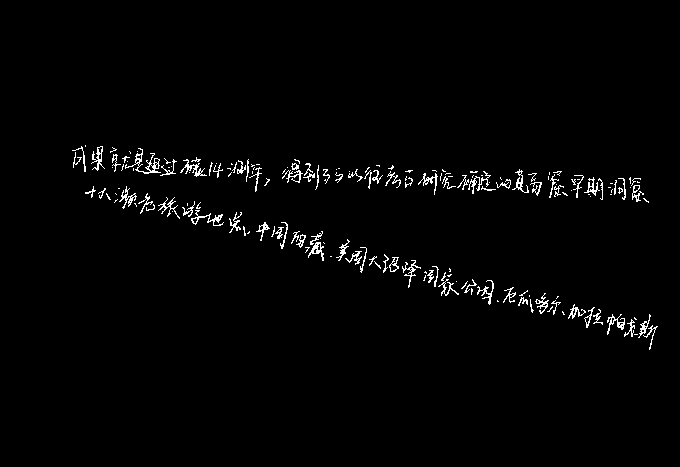 成果就是通过碳14测年，得到了与以往考古研究确定的莫高窟早期洞窟
十大濒危旅游地点，中国西藏、美国大沼泽国家公园、厄瓜多尔、加拉帕戈斯